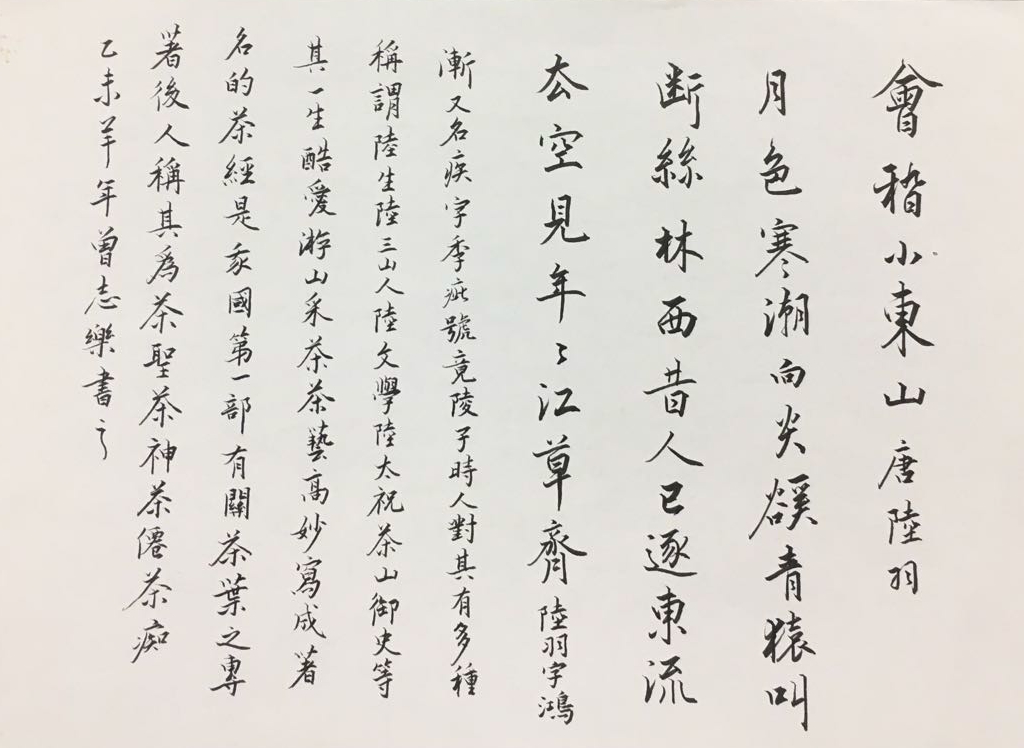 會稽小東山唐陸羽
月色寒潮向剡谿青猿叫
断絲林西昔人已逐東流
去空見年〻江草齊陸羽字鴻
漸又名疾字季疵號竟陵子時人對其有多種
稱謂陸生陸三山人陸文學陸太祝茶山御史等
其一生酷愛游山采茶茶藝高妙寫成著
名的茶經是我國第一部有關茶葉之專
著後人稱其爲茶聖茶神茶僊茶痴
乙未羊年曾志樂書之